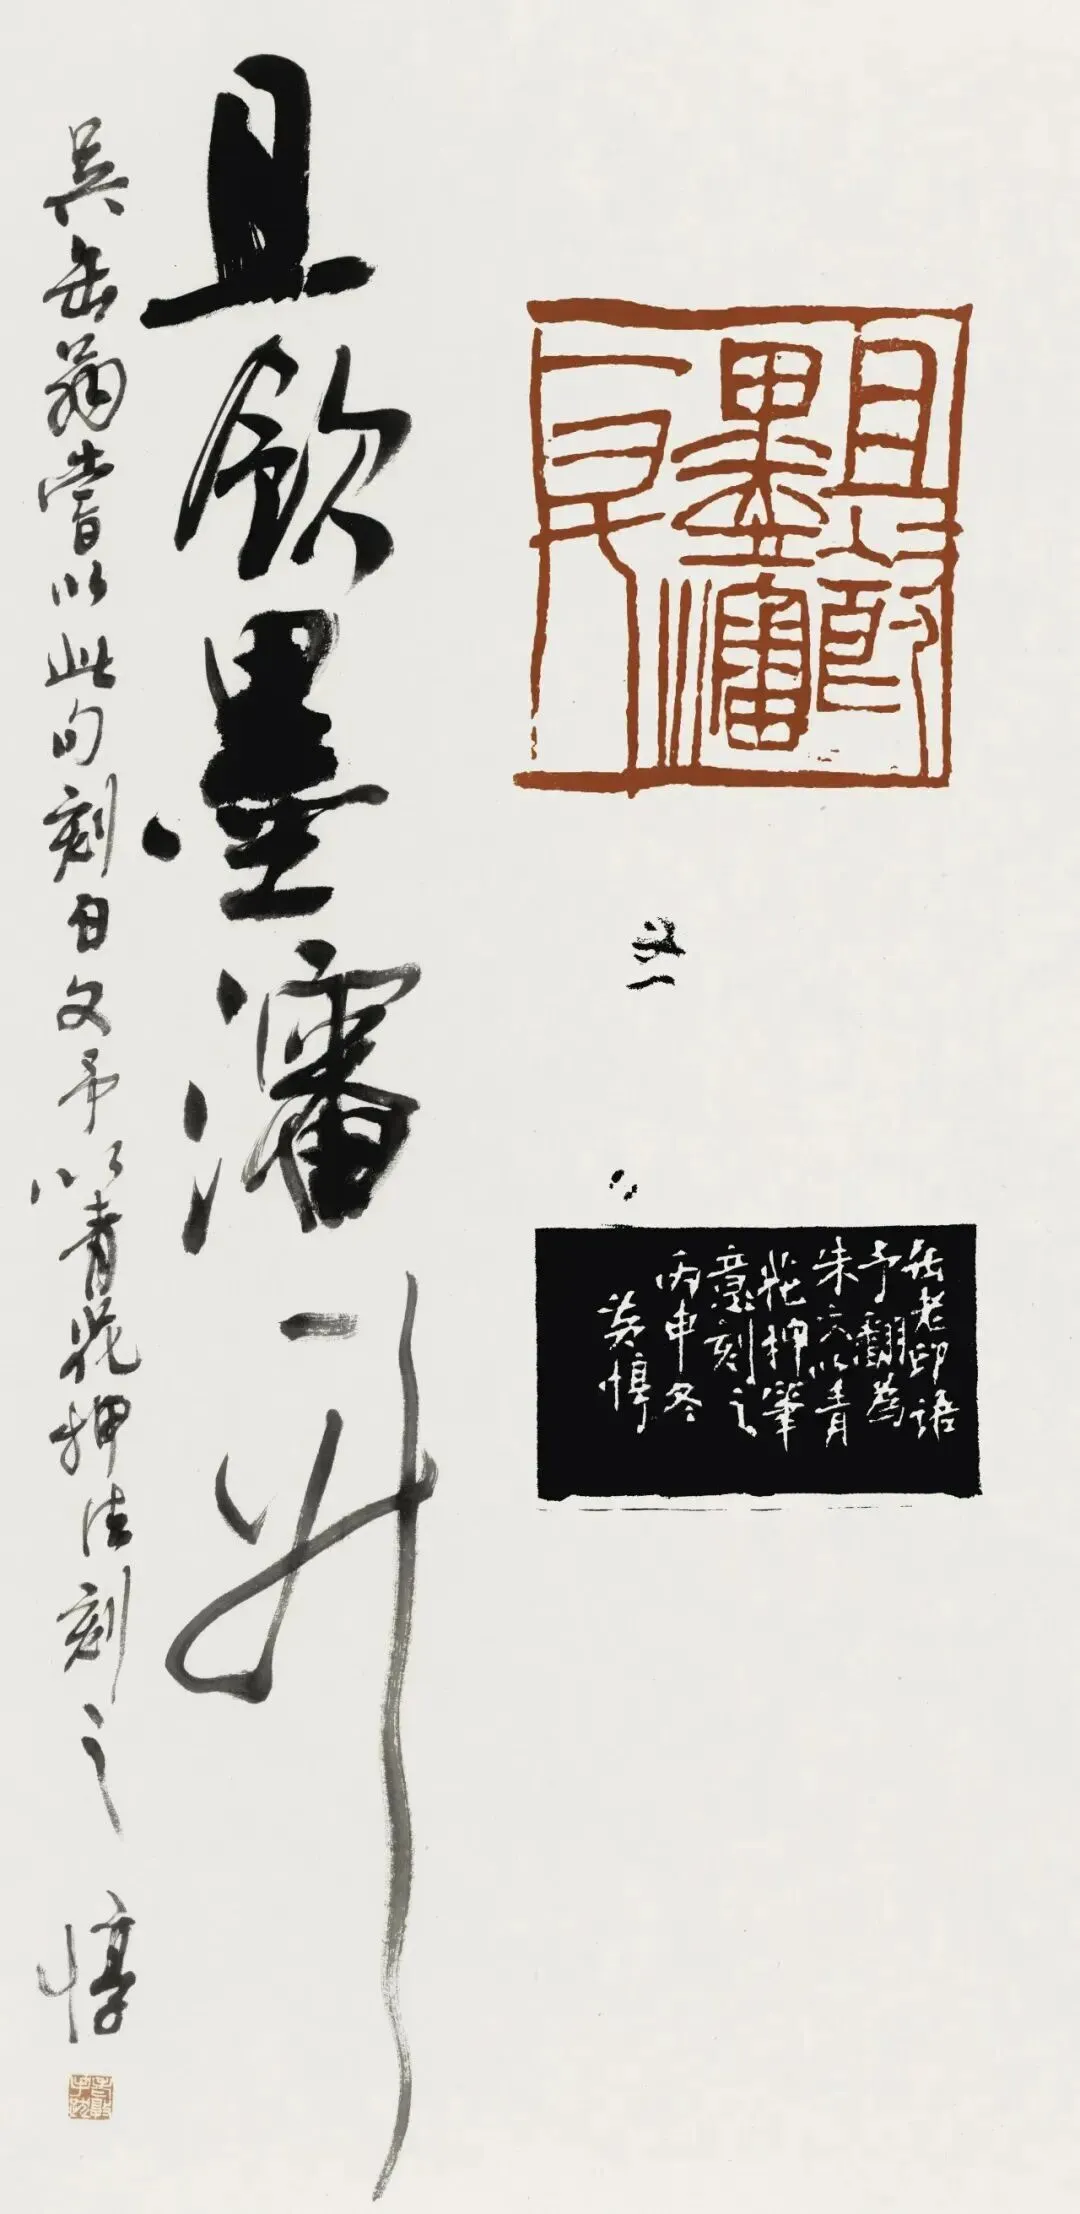 且飲
墨瀋
一升
缶老印語
予翻為
朱文以青
花押筆
意刻之
丙申冬
黃惇
且飲墨瀋一升
吳缶翁嘗以此句刻白文予以青花押法刻之 惇